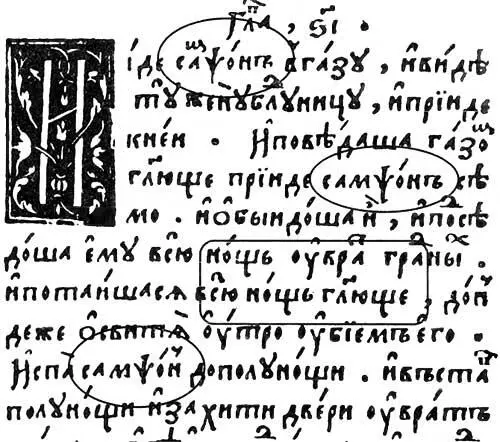 Гла́ⷡ҇ , ѕ҃і .
И і́де саⷨѱо́нъ вга́зꙋ , и҆ви́дѣ
тꙋ̀ женꙋ̀блꙋⷣницꙋ , и҆прїи́де
кне́и . И҆повѣ́даша га́зоⷨ
гл҃юще прїи́де самѱо́нъ сѣ
мо . и҆ѻ҆быидо́ша и҆̀ , и҆посѣ
до́ша е҆мꙋ всю̀ но́щь оу҆враⷮ граⷣны́ⷯ .
и҆потаи́шася всю̀ но́щь гл҃юще , доⷩ҇
деже ѻ҆свита́еⷮ оу҆́тро оу҆бїе́мъ е҆го .
И҆спа̀ самѱо́ⷩ дополꙋно́щи . и҆въстаⷡ҇
полꙋно́щи и҆захити две́ри оу҆вра́тъ